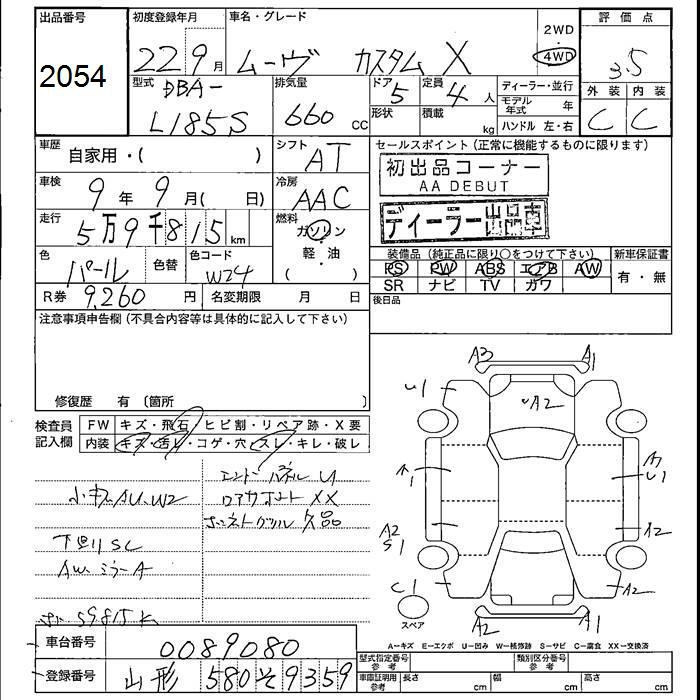 出品番号
2054
初度登録年月
22 9 月
車名・グレード
ムーヴ カスタム X
2WD
・
4WD
評価点
3.5
外装 内装
C C
型式
DBA-
L185S
排気量
660 CC
ドア 5
形状
定員 4 人
積載 kg
ディーラー・並行
モデル年式 年
ハンドル 左・右
車歴
自家用・( )
シフト
AT
車検
9 年 9 月( 日)
冷房
AAC
走行
5万9千815 km
燃料
ガソリン
軽・油
( )
色
パール
色替
色コード
W24
R券 9,260 円
名変期限 月 日
セールスポイント(正常に機能するものに限ります)
初出品コーナー
AA DEBUT
ディーラー出品車
装備品(純正品に限り○をつけて下さい)
新車保証書
PS PW ABS エアB AW
有・無
SR ナビ TV カワ
後日品
注意事項申告欄(不具合内容等は具体的に記入して下さい)
修復歴 有〔箇所 〕
検査員記入欄
FW キズ・飛石・ヒビ割・リペア跡・X要
内装 キズ・汚レ・コゲ・穴・スレ・キレ・破レ
小キズAU、W2
下廻リSC
AW ミラーA
59815K
エンドパネルU
ロアサポートXX
ボンネットグリル欠品
A3 A1
U1
A2
A1
A2
S1
U1
A2
C1
A2
A2 A1
スペア
A=キズ E=エクボ U=凹み W=補修跡 S=サビ C=腐食 XX=交換済
車台番号 0089080
登録番号 山形 580 そ 9359
型式指定番号 参考
類別区分番号 参考
車庫証明用 参考
長さ cm
幅 cm
高さ cm